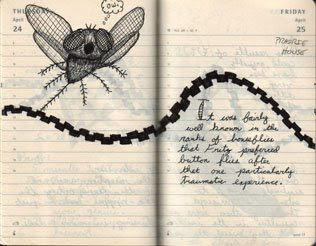 THURSDAY
April
24
OW!
FRIDAY
April
25
PRAIRIE
HOUSE
It was fairly
well known in the
ranks of houseflies
that Fritz preferred
button flies after
that one particularly
traumatic experience.